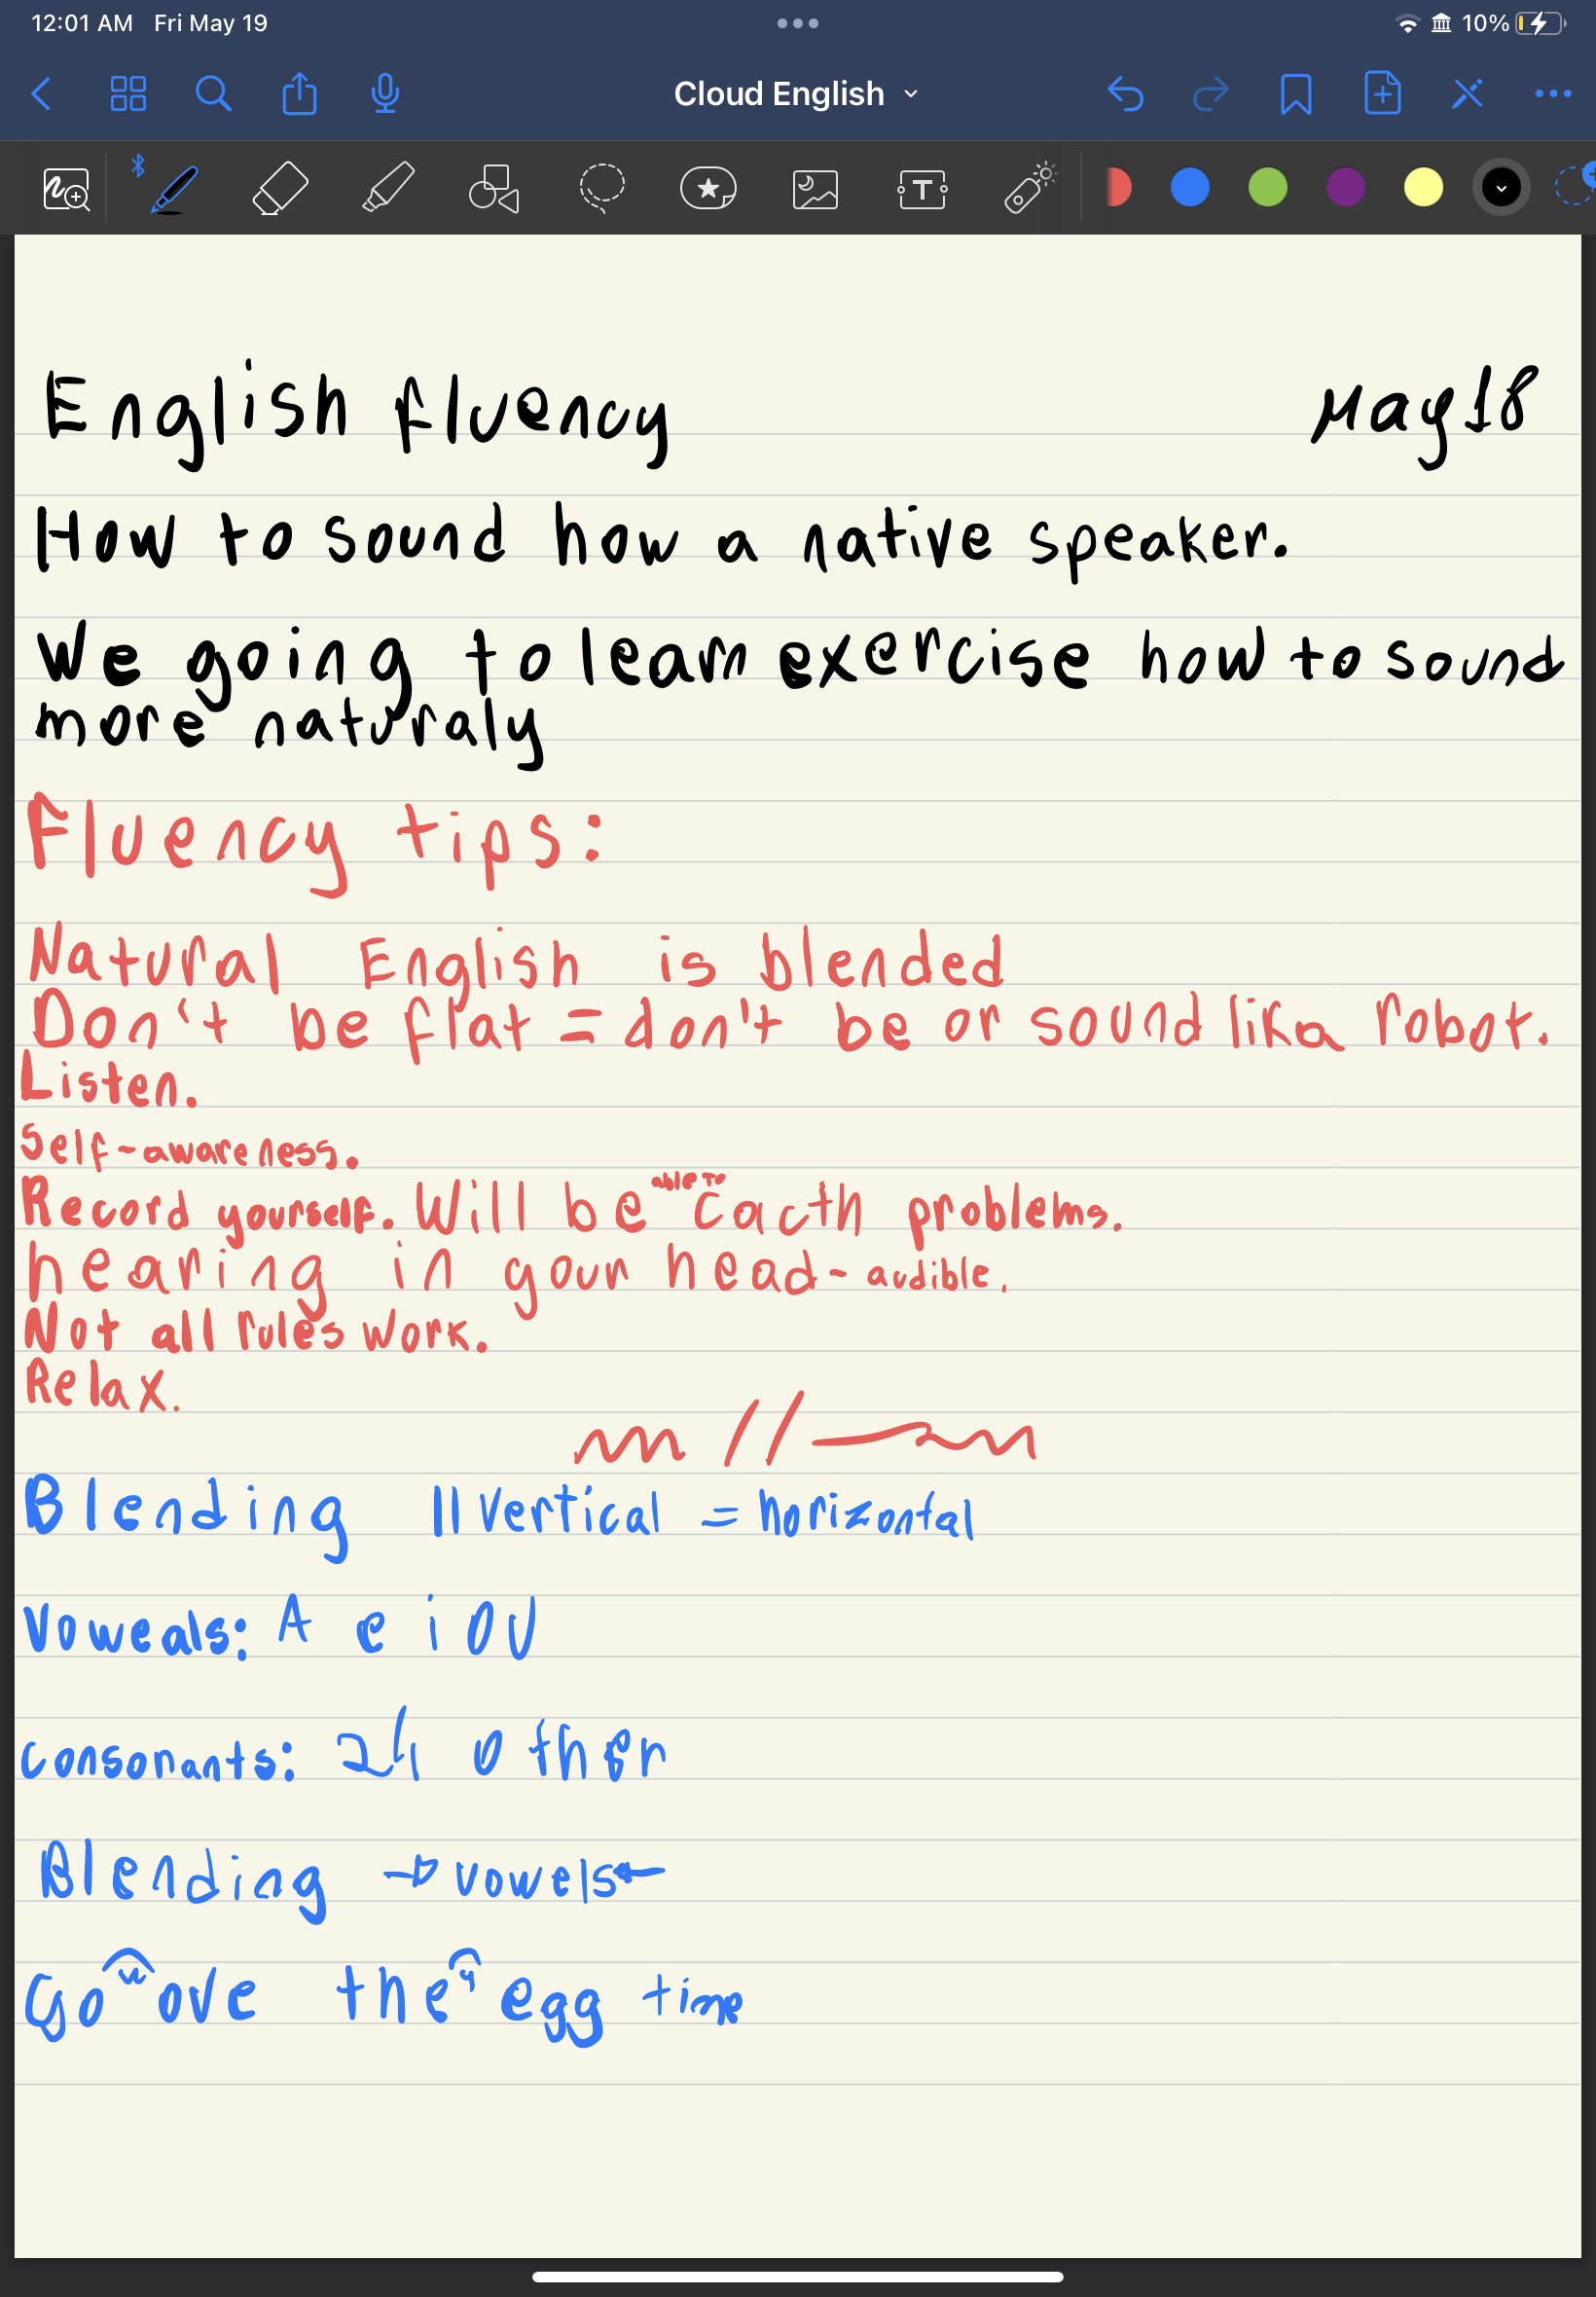 12:01 AM Fri May 19 10%
Cloud English
T
English fluency May 18
How to sound how a native speaker.
We going to learn exercise how to sound
more naturaly
Fluency tips:
Natural English is blended
Don't be flat = don't be or sound like robot.
Listen.
Self-awareness.
Record yourself. Will be able to cacth problems.
hearing in your head - audible.
Not all rules work.
Relax.
Blending || vertical = horizontal
Voweals: A e i O U
consonants: all other
Blending → vowels ←
Go w ove the y egg time